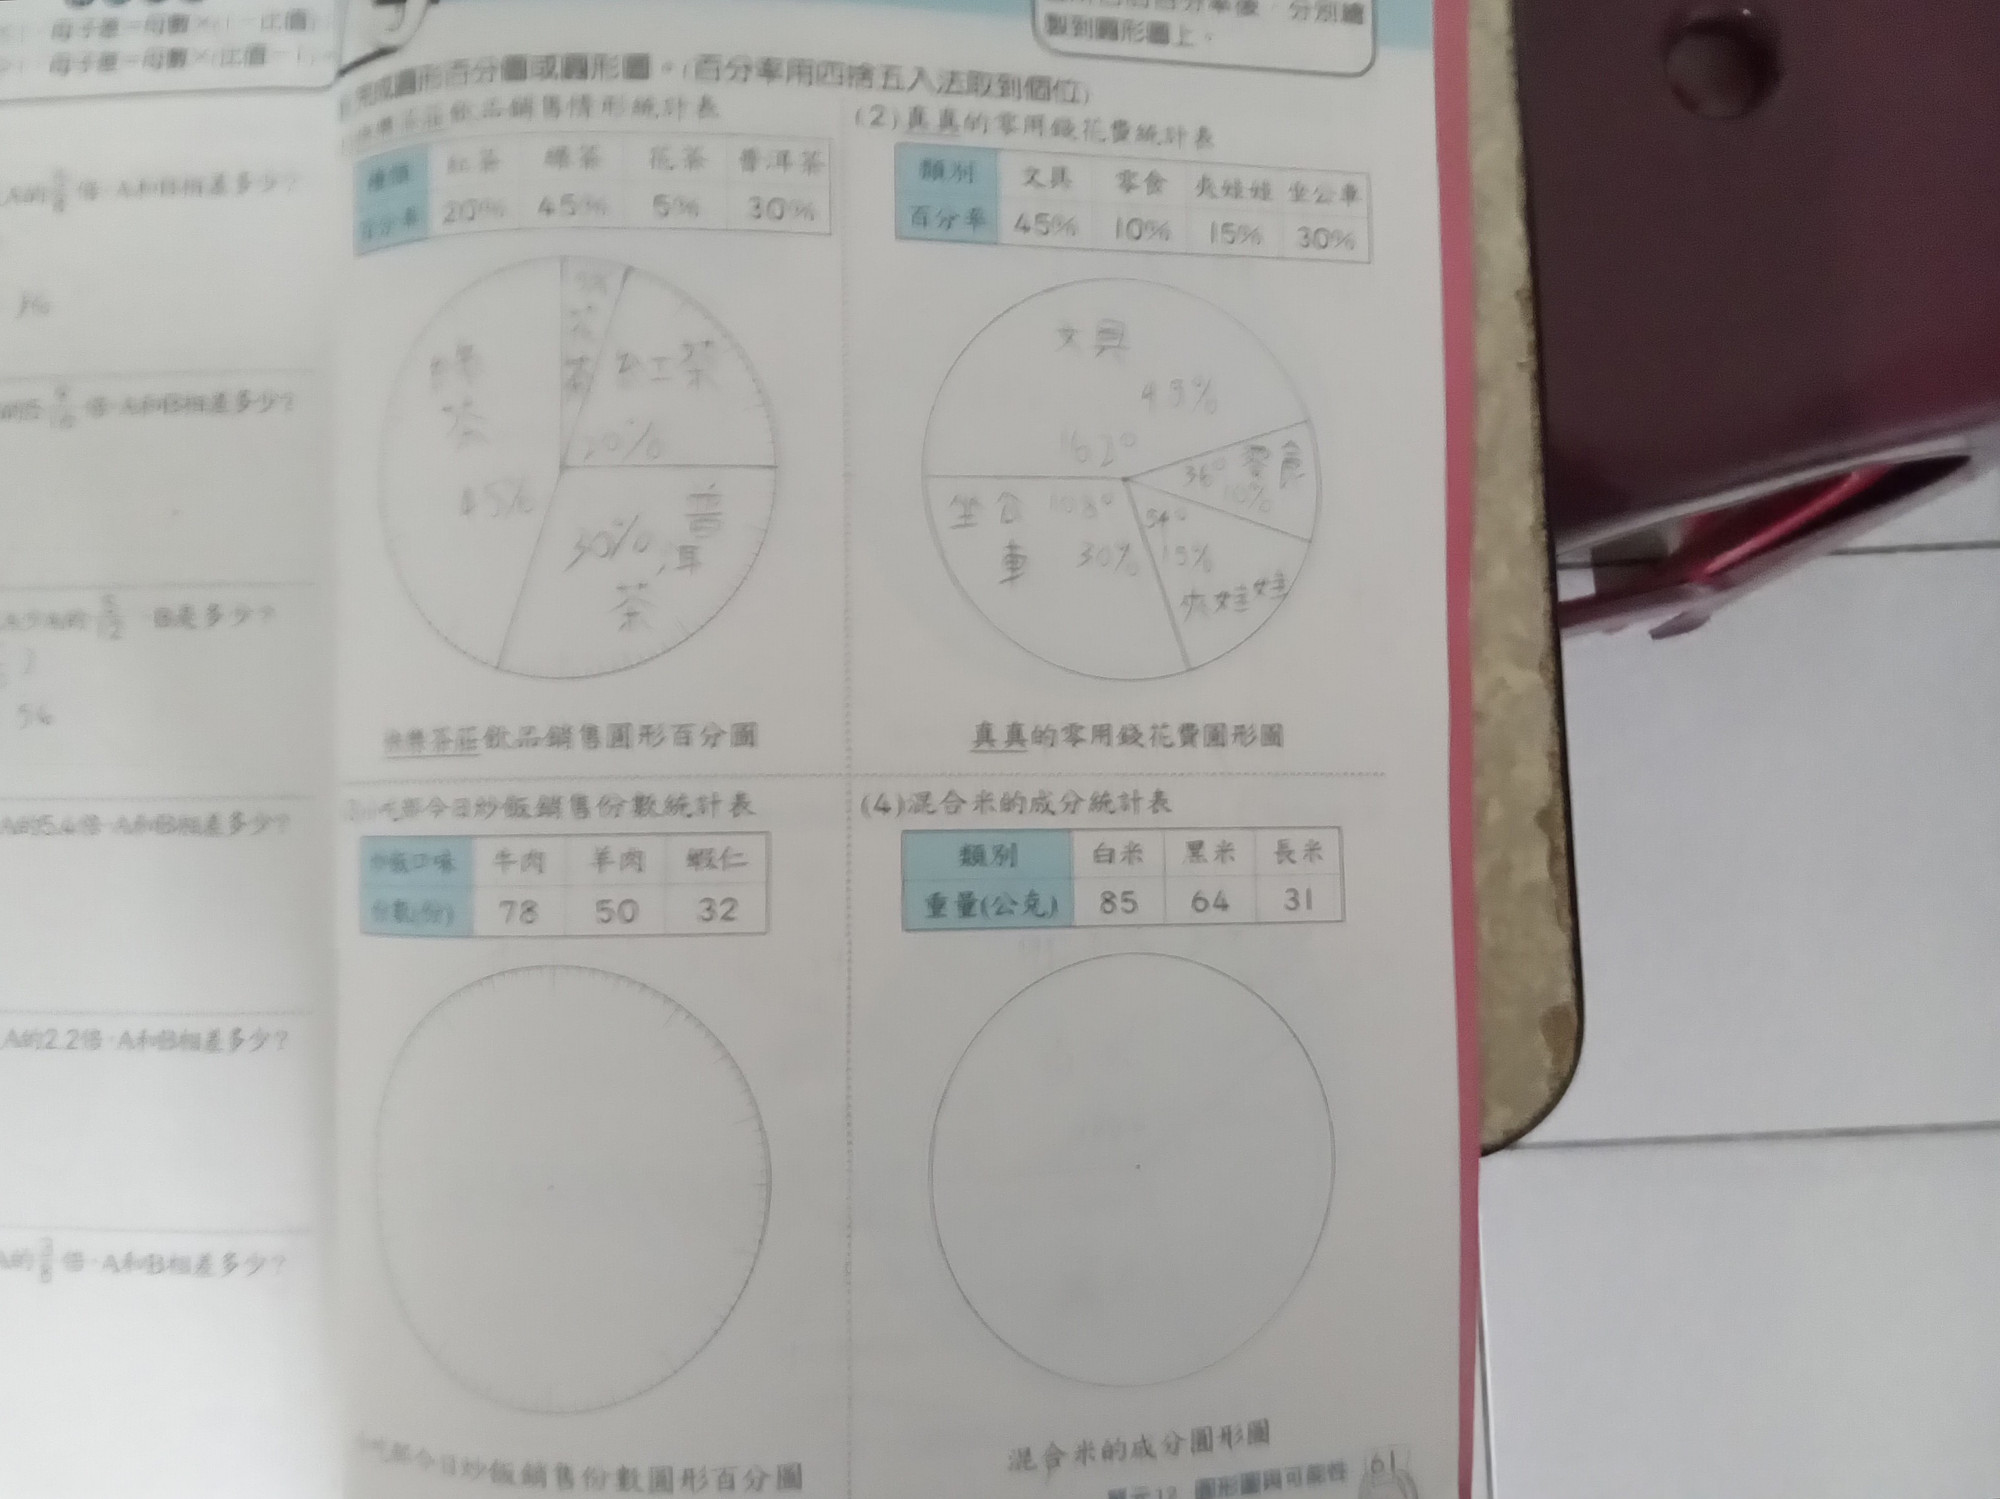 母子差=母數×(1-比值)
母子差=母數×(比值-1)
分別繪
製到圓形圖上。
完成圓形百分圖或圓形圖。(百分率用四捨五入法取到個位)
飲品銷售情形統計表
種類 紅茶 綠茶 花茶 普洱茶
百分率 20% 45% 5% 30%
綠茶
45%
花茶
紅茶
20%
30%
普洱茶
飲品銷售圓形百分圖
(2)真真的零用錢花費統計表
類別 文具 零食 夾娃娃 坐公車
百分率 45% 10% 15% 30%
文具
45%
162°
36° 零食
10%
54°
15%
夾娃娃
坐公車
108°
30%
真真的零用錢花費圓形圖
今日炒飯銷售份數統計表
炒飯口味 牛肉 羊肉 蝦仁
份數(份) 78 50 32
今日炒飯銷售份數圓形百分圖
(4)混合米的成分統計表
類別 白米 黑米 長米
重量(公克) 85 64 31
混合米的成分圓形圖
單元12 圓形圖與可能性 61
倍,A和B相差多少?
倍,A和B相差多少?
5/12,B是多少?
56
A的5.4倍,A和B相差多少?
A的2.2倍,A和B相差多少?
A的3/8倍,A和B相差多少?